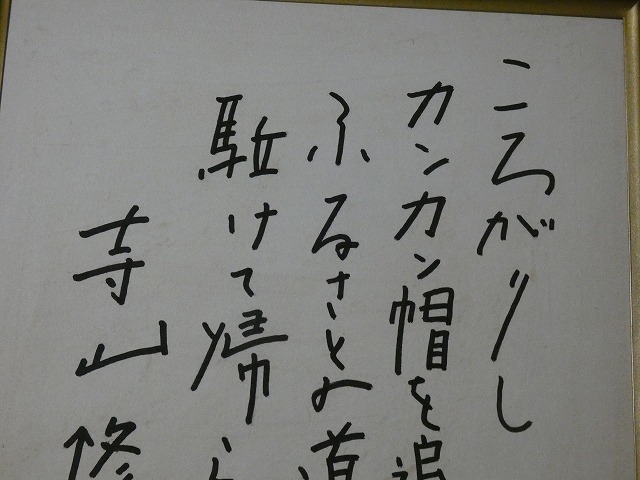 ころがりし
カンカン帽を追
ふるさとの道
駈けて帰ら
寺山修